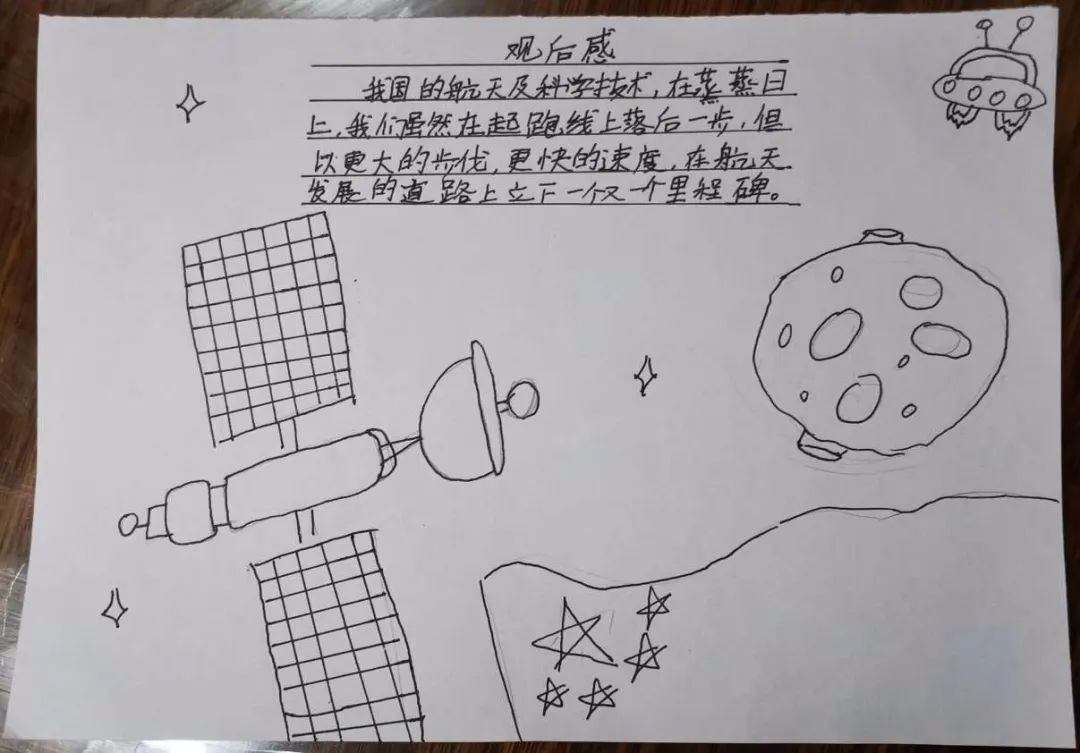 观后感
我国的航天及科学技术，在蒸蒸日
上，我们虽然在起跑线上落后一步，但
以更大的步伐，更快的速度，在航天
发展的道路上立下一个又一个里程碑。